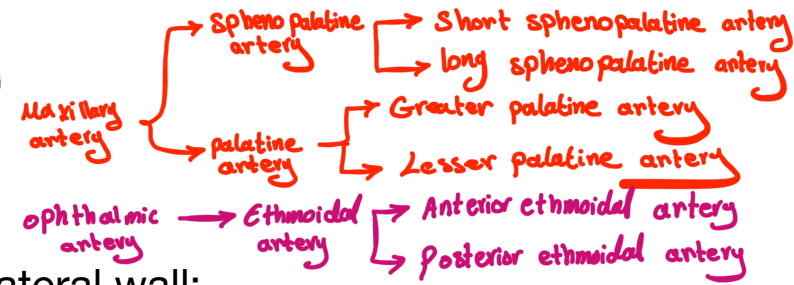 Sphenopalatine artery
Short sphenopalatine artery
long sphenopalatine artery
Maxillary artery
Greater palatine artery
palatine artery
Lesser palatine artery
ophthalmic artery
Ethmoidal artery
Anterior ethmoidal artery
Posterior ethmoidal artery
ateral wall: